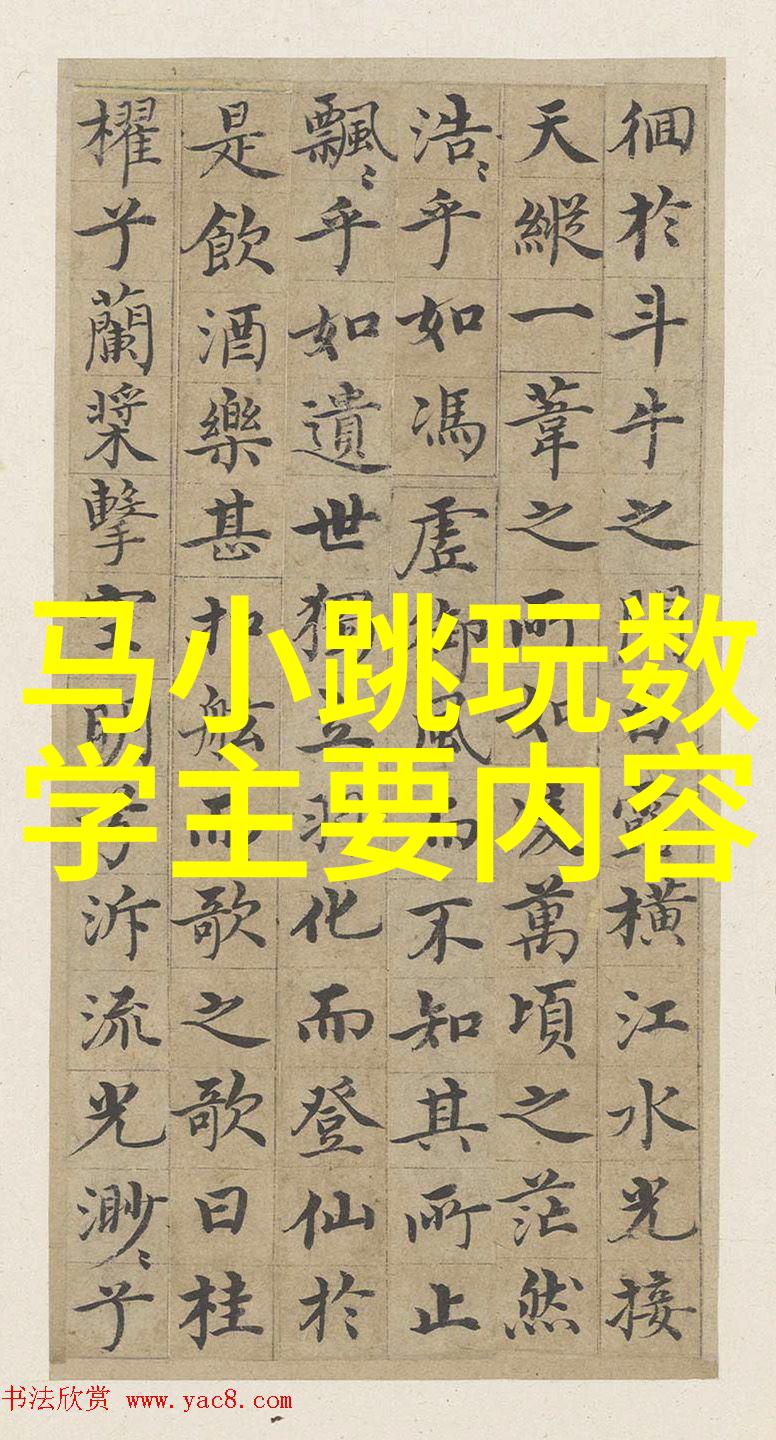 徊於斗牛之間白露橫江水光接
天縱一葦之所如凌萬頃之茫然
浩〻乎如馮虛御風而不知其所止
飄〻乎如遺世獨立羽化而登仙於
是飲酒樂甚扣舷而歌之歌曰桂
櫂兮蘭槳擊空明兮泝流光渺〻兮
马小跳玩数
学主要内容
书法欣赏 www.yac8.com